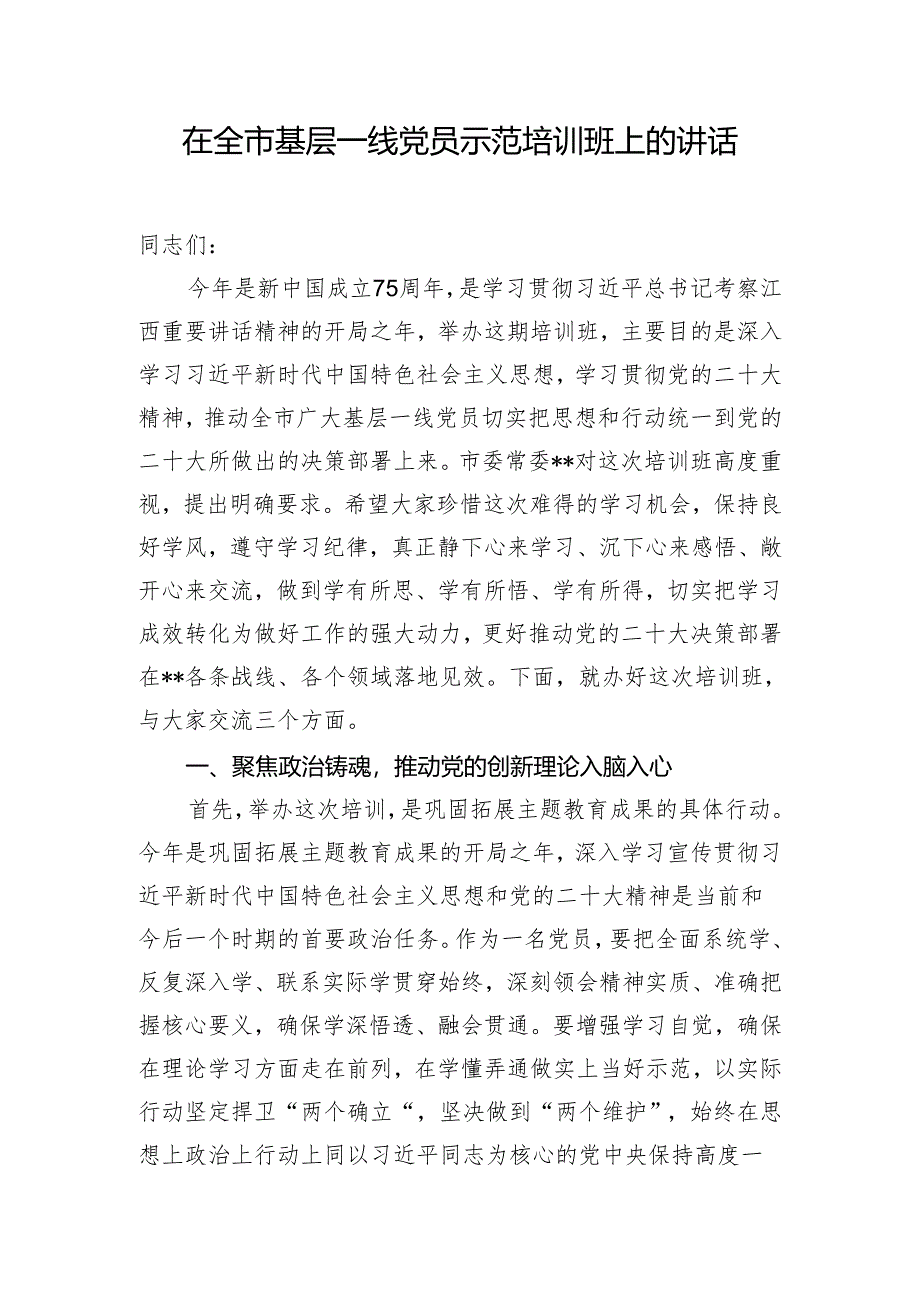 在全市基层一线党员示范培训班上的讲话
同志们：
今年是新中国成立75周年，是学习贯彻习近平总书记考察江
西重要讲话精神的开局之年，举办这期培训班，主要目的是深入
学习习近平新时代中国特色社会主义思想，学习贯彻党的二十大
精神，推动全市广大基层一线党员切实把思想和行动统一到党的
二十大所做出的决策部署上来。市委常委**对这次培训班高度重
视，提出明确要求。希望大家珍惜这次难得的学习机会，保持良
好学风，遵守学习纪律，真正静下心来学习、沉下心来感悟、敞
开心来交流，做到学有所思、学有所悟、学有所得，切实把学习
成效转化为做好工作的强大动力，更好推动党的二十大决策部署
在**各条战线、各个领域落地见效。下面，就办好这次培训班，
与大家交流三个方面。
一、聚焦政治铸魂，推动党的创新理论入脑入心
首先，举办这次培训，是巩固拓展主题教育成果的具体行动。
今年是巩固拓展主题教育成果的开局之年，深入学习宣传贯彻习
近平新时代中国特色社会主义思想和党的二十大精神是当前和
今后一个时期的首要政治任务。作为一名党员，要把全面系统学、
反复深入学、联系实际学贯穿始终，深刻领会精神实质、准确把
握核心要义，确保学深悟透、融会贯通。要增强学习自觉，确保
在理论学习方面走在前列，在学懂弄通做实上当好示范，以实际
行动坚定捍卫“两个确立“，坚决做到“两个维护”，始终在思
想上政治上行动上同以习近平同志为核心的党中央保持高度一